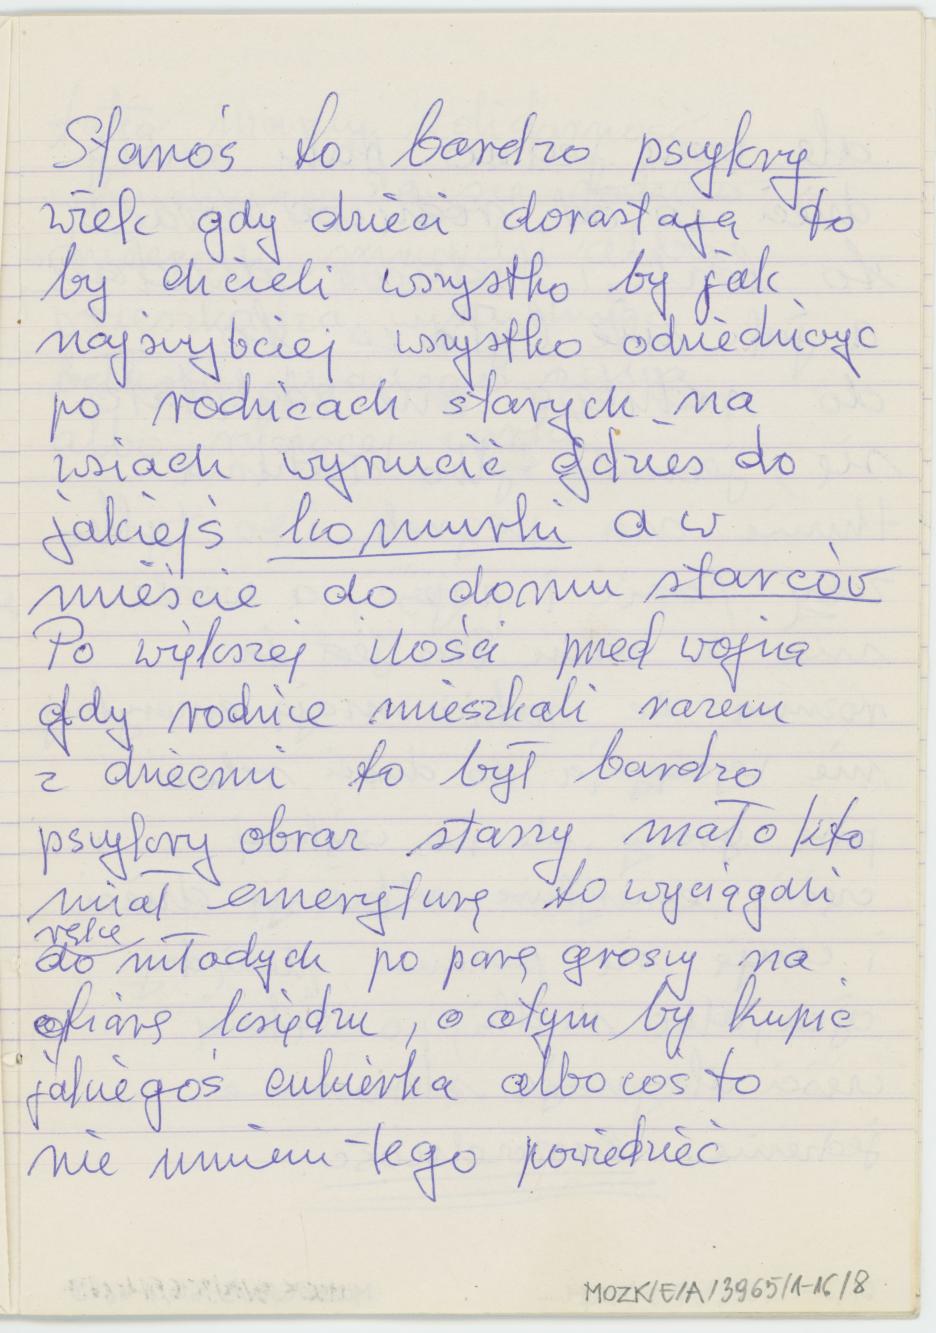 Starość to bardzo pszykry
wiek gdy dzieci dorastają to
by chcieli wszystko by jak
najszybciej wszystko odziedziczyc
po rodzicach starych na
wsiach wyrzucić gdzieś do
jakiejś komurki a w
mieście do domu starców
Po większej ilości przed wojna
gdy rodzice mieszkali razem
z dziecmi to był bardzo
pszykry obraz starzy mało kto
miał emeryturę to wyciągali
rękę
do młodych po parę groszy na
ofiarę księdzu, o otym by kupić
jakiegoś cukierka albo coś to
nie umiem tego powiedzieć
MOZK/E/A/3965/1-16/8